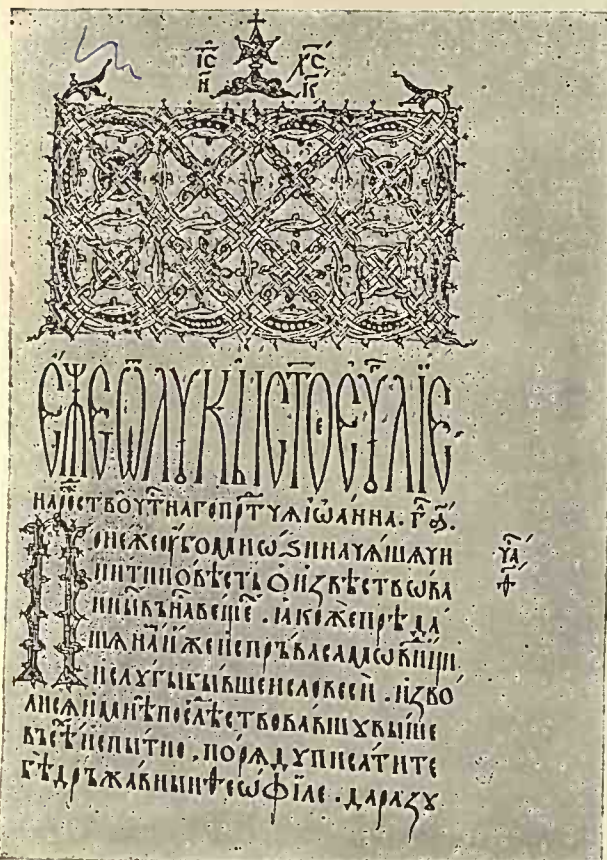 І҃С Х҃С
Н҃ К҃
ЕЖЕ Ѿ ЛУКЫ СТОЕ ЕУ҃ЛІЕ
на рⷤство чⷭ҇тнаго прⷣтчѧ іѡанна. гл҃а.
Понеже оубо мнѡѕи начѧшѧ чи
нити повѣсть ѡ извѣствова
нныⷯ въ наⷭ҇ вещеⷯ. ꙗкоже прѣда
шѧ наⷨ иже испръва самѡвидци
и слугы бывше словеси. изво
лисѧ и мнѣ послѣдствовавшу выше
въсѣⷨ испытно. по рѧду писати те
бѣ дръжавныи ѳеѡфіле. да разу
ча҃